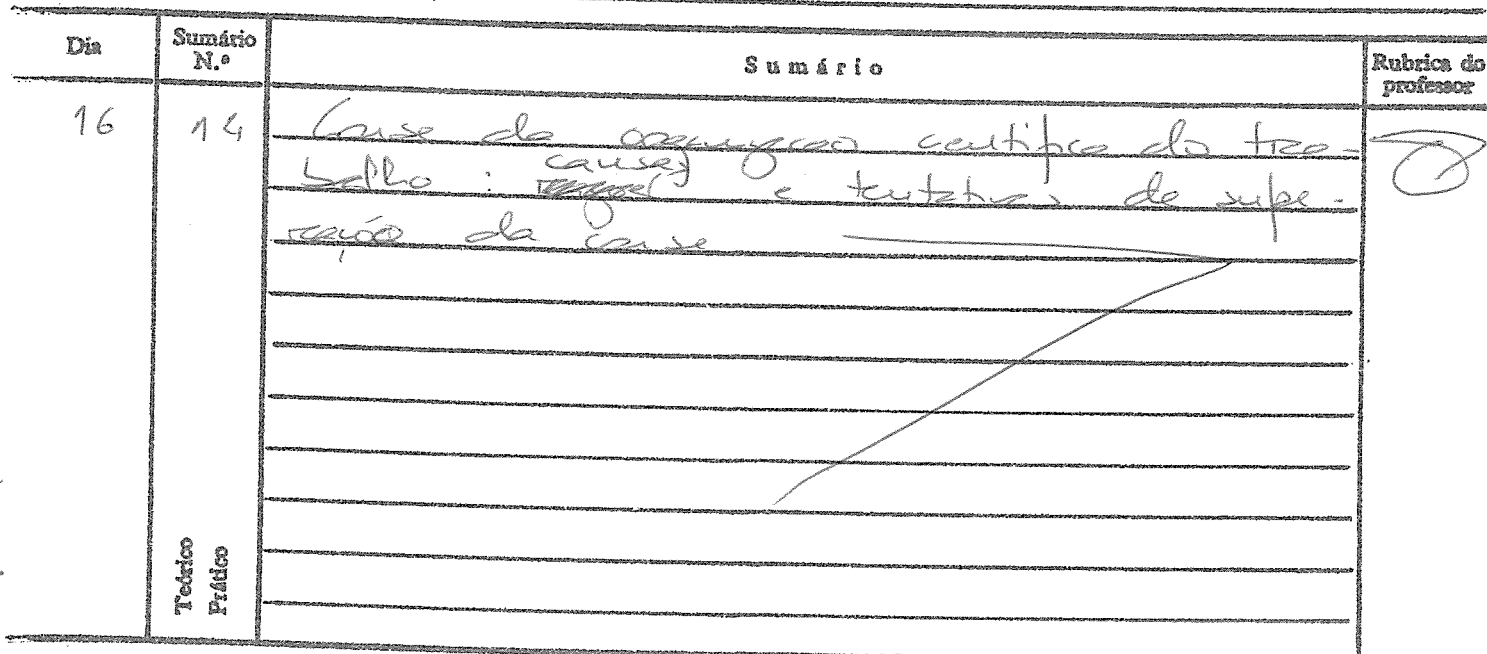 Dia Sumário N.º Sumário Rubrica do professor
16 14 Crise da organização científica do tra-
balho : causas e tentativas de supe-
ração da crise
Teórico
Prático